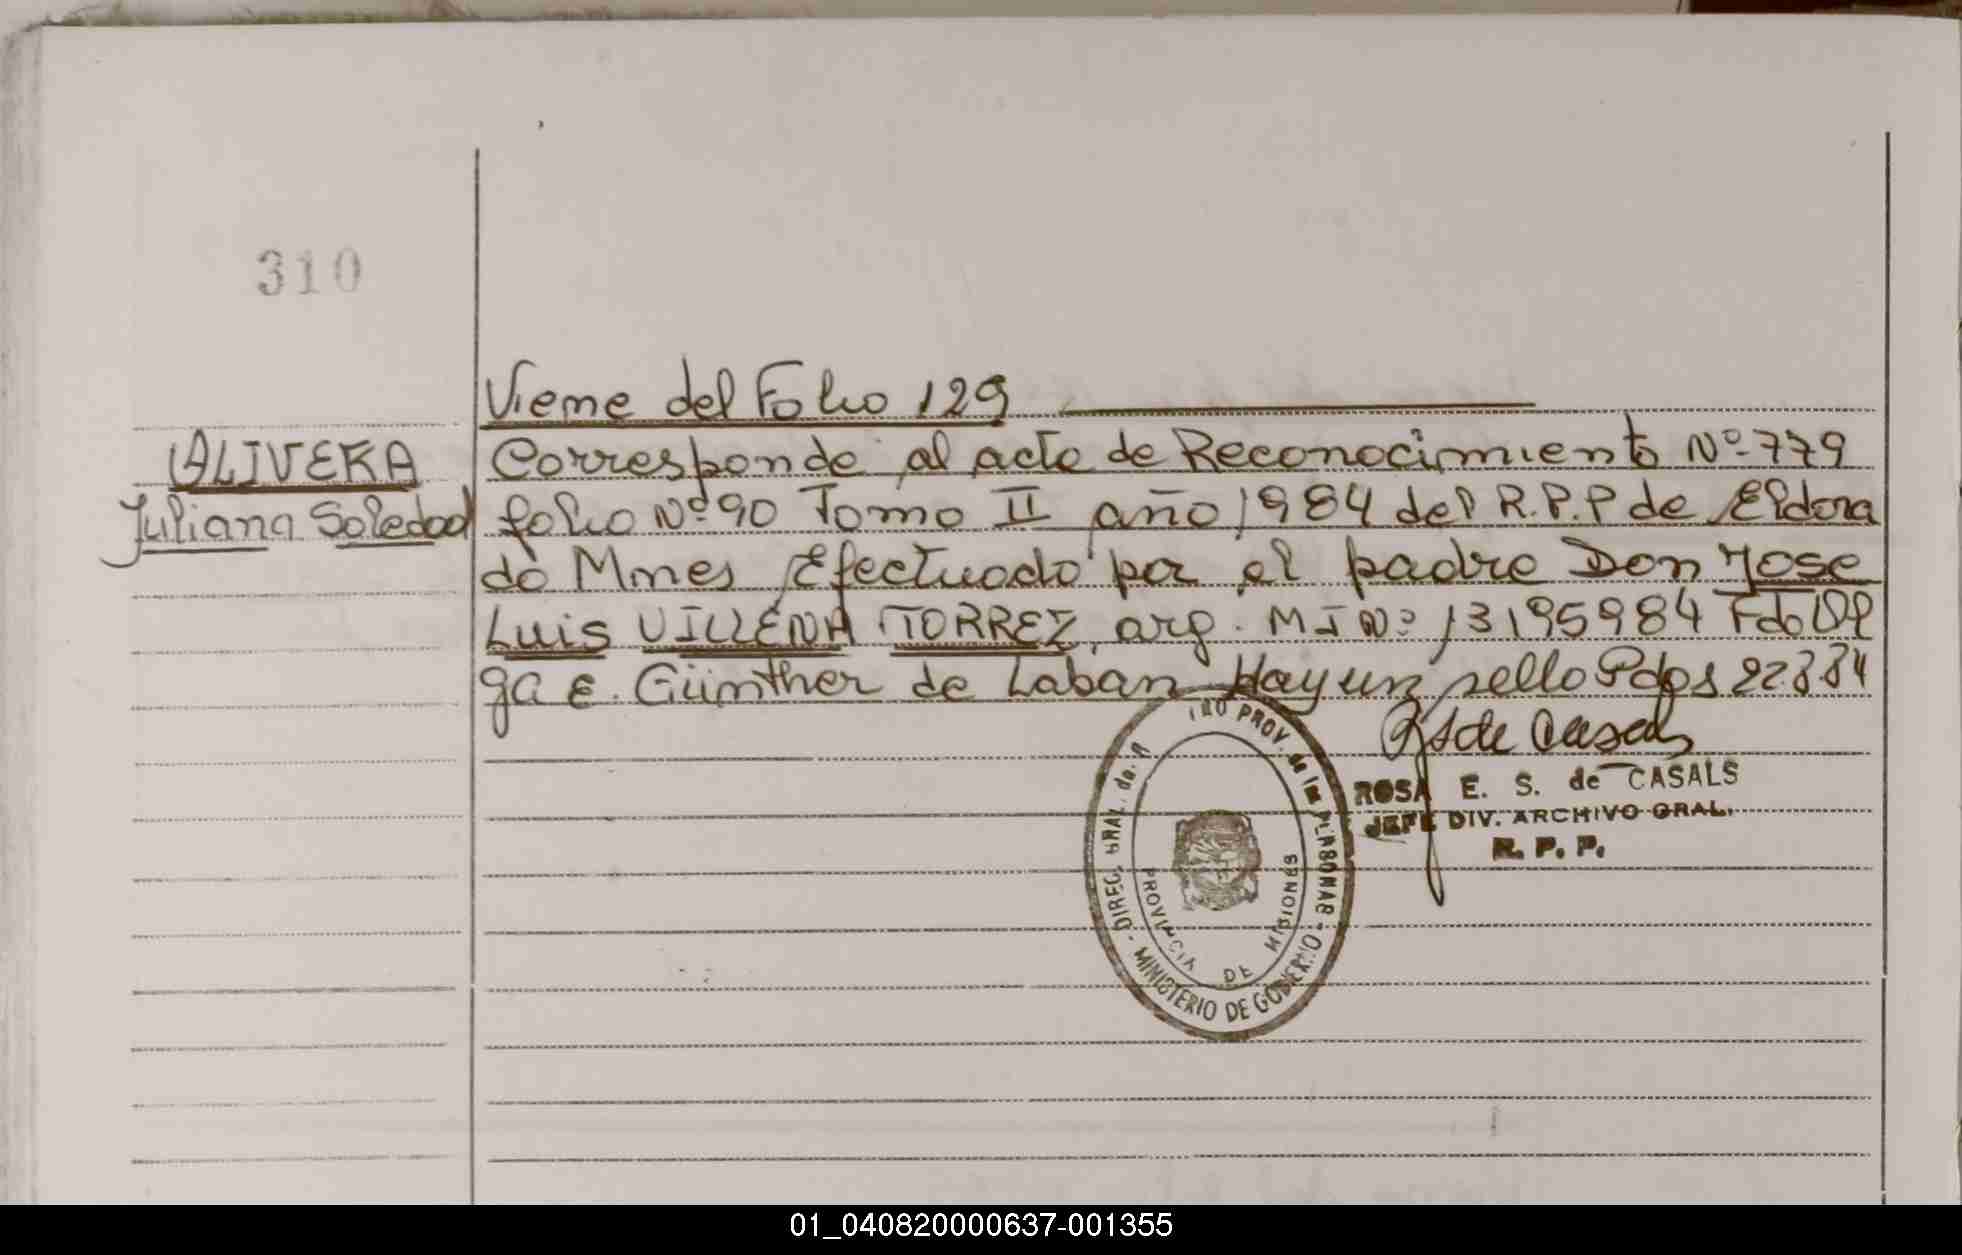 310
Viene del Folio 129
OLIVERA
Juliana Soledad
Corresponde al acto de Reconocimiento Nº 779
folio Nº 90 Tomo II año 1984 del R.P.P de Eldora
do Mnes Efectuado por el padre Don Jose
Luis VILLENA TORREZ, arg. MI Nº 13195984 Fdo Ol
ga E. Günther de Laban Hay un sello Pdos 22
R S de Casals
ROSA E. S. de CASALS
JEFE DIV. ARCHIVO GRAL.
R. P. P.
DIREC. GRAL. de. PROV. de las PERSONAS - MINISTERIO DE GOBIERNO -
PROVINCIA DE MISIONES
01_040820000637-001355